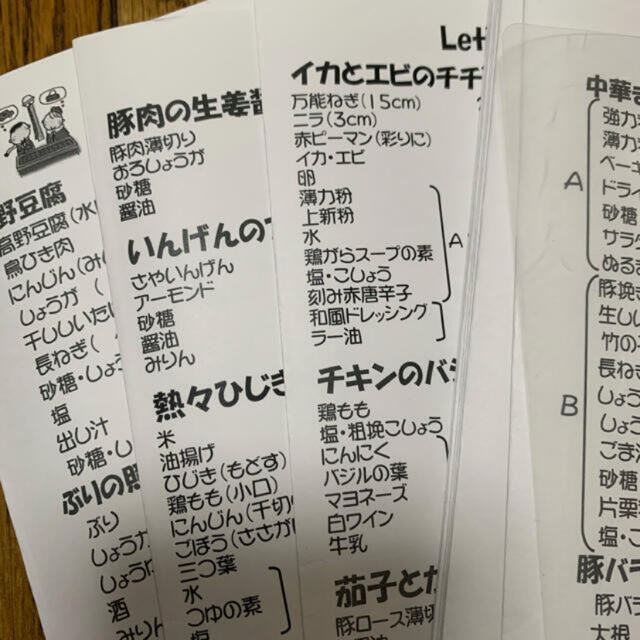 野豆腐
高野豆腐(水
鳥ひき肉
にんじん(み
しょうが(
干ししいた
長ねぎ(
砂糖・しょ
塩
出し汁
砂糖・し
ぶりの照
ぶり
しょうが
しょうゆ
酒
みりん
豚肉の生姜醤
豚肉薄切り
おろしょうが
砂糖
醤油
いんげんの
さやいんげん
アーモンド
砂糖
醤油
みりん
熱々ひじき
米
油揚げ
ひじき(もどす)
鶏もも(小口)
にんじん(千切
ごぼう(ささが
三つ葉
水
つゆの素
塩
Let
イカとエビのチヂ
万能ねぎ(15cm)
ニラ(3cm)
赤ピーマン(彩りに)
イカ・エビ
卵
薄力粉
上新粉
水
鶏がらスープの素
塩・こしょう
刻み赤唐辛子
A
和風ドレッシング
ラー油
チキンのバジ
鶏もも
塩・粗挽こしょう
にんにく
バジルの葉
マヨネーズ
白ワイン
牛乳
茄子とた
豚ロース薄切
中華き
強力
薄力
ベーキ
ドライ
砂糖
サラ
ぬる
A
豚挽
生し
竹の
長ね
しょう
しょう
ごま
砂糖
片栗
塩・こ
B
豚バラ
豚バラ
大根